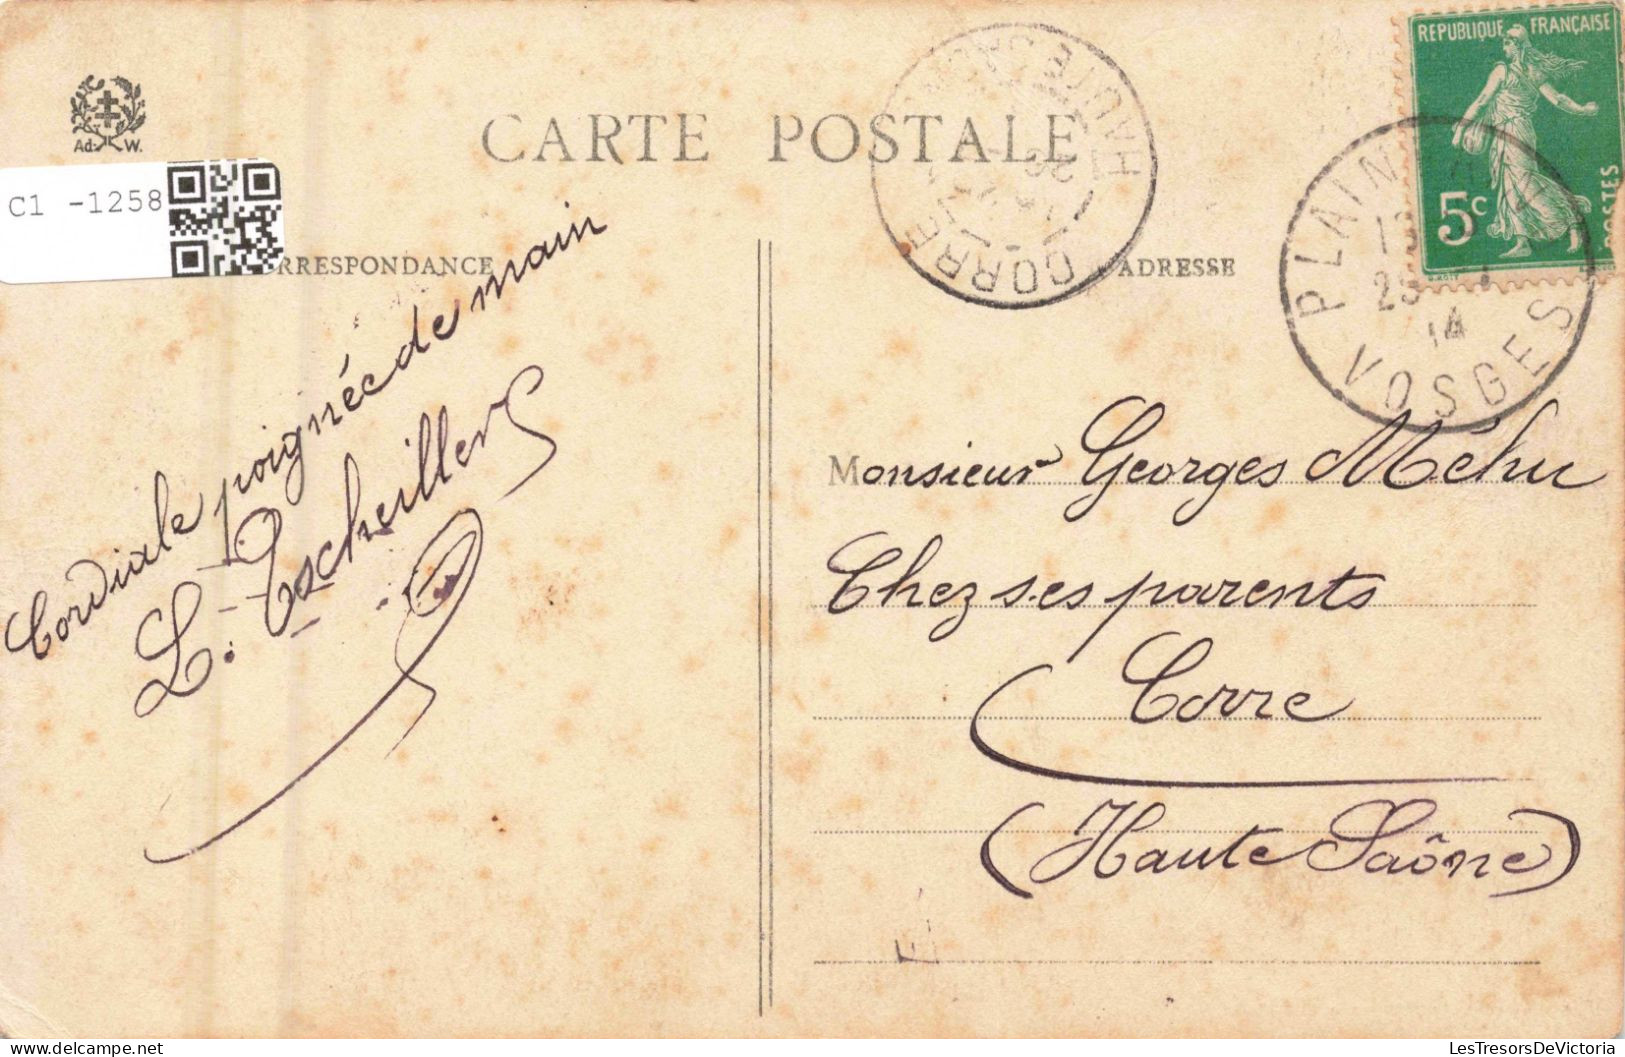 CARTE POSTALE
Ad. W.
C1 -1258
RRESPONDANCE
ADRESSE
REPUBLIQUE FRANÇAISE
5c
POSTES
HAUTE SAONE
CORRE
PLAIN
VOSGES
13
25
14
Cordiale poignée de main
L. Escheillers
Monsieur Georges Méhu
Chez ses parents
Corre
(Haute Saône)
LesTresorsDeVictoria